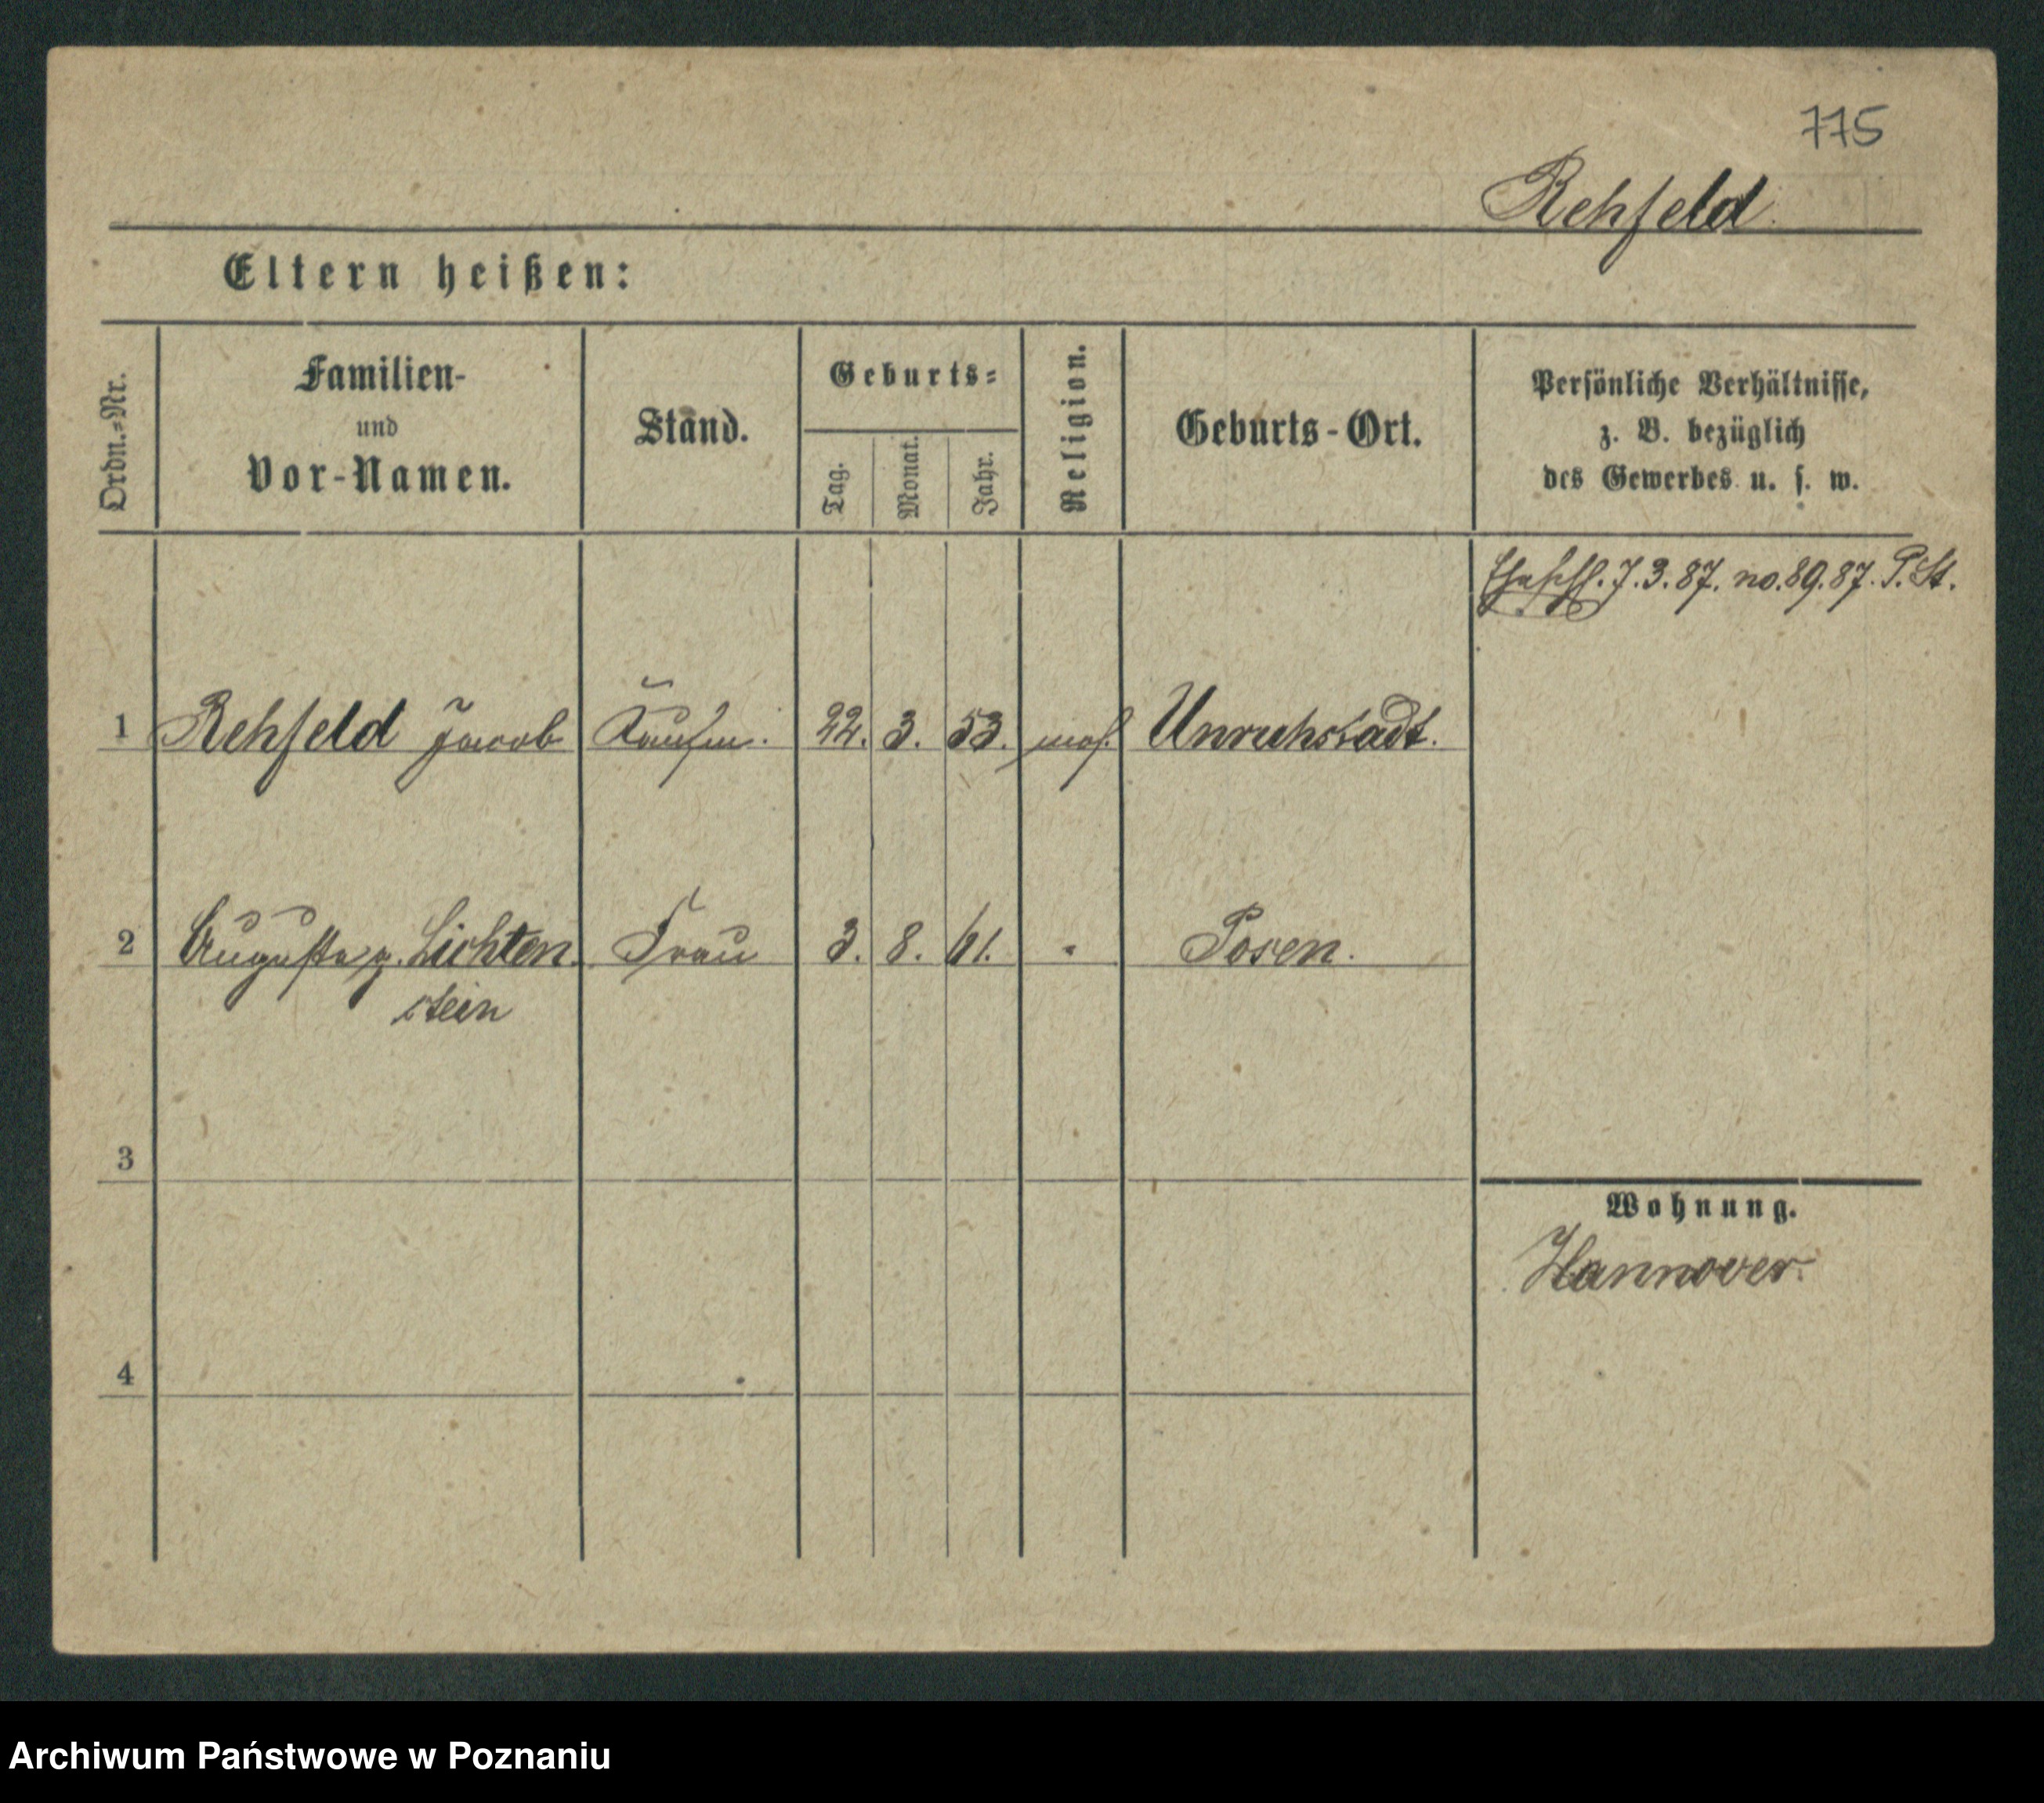 775
Rehfeld.
Eltern heißen:
Ordn.-Nr.
Familien-
und
Vor-Namen.
Stand.
Geburts-
Tag.
Monat.
Jahr.
Religion.
Geburts-Ort.
Persönliche Verhältnisse,
z. B. bezüglich
des Gewerbes u. s. w.
Eheschl. 7.3.87. no. 89.87. P. St.
1 Rehfeld Jacob Kaufm. 22. 3. 53. mos. Unruhstadt.
2 Auguste g. Lichten Frau 3. 8. 61. " Posen.
stein
3
Wohnung.
Hannover.
4
Archiwum Państwowe w Poznaniu